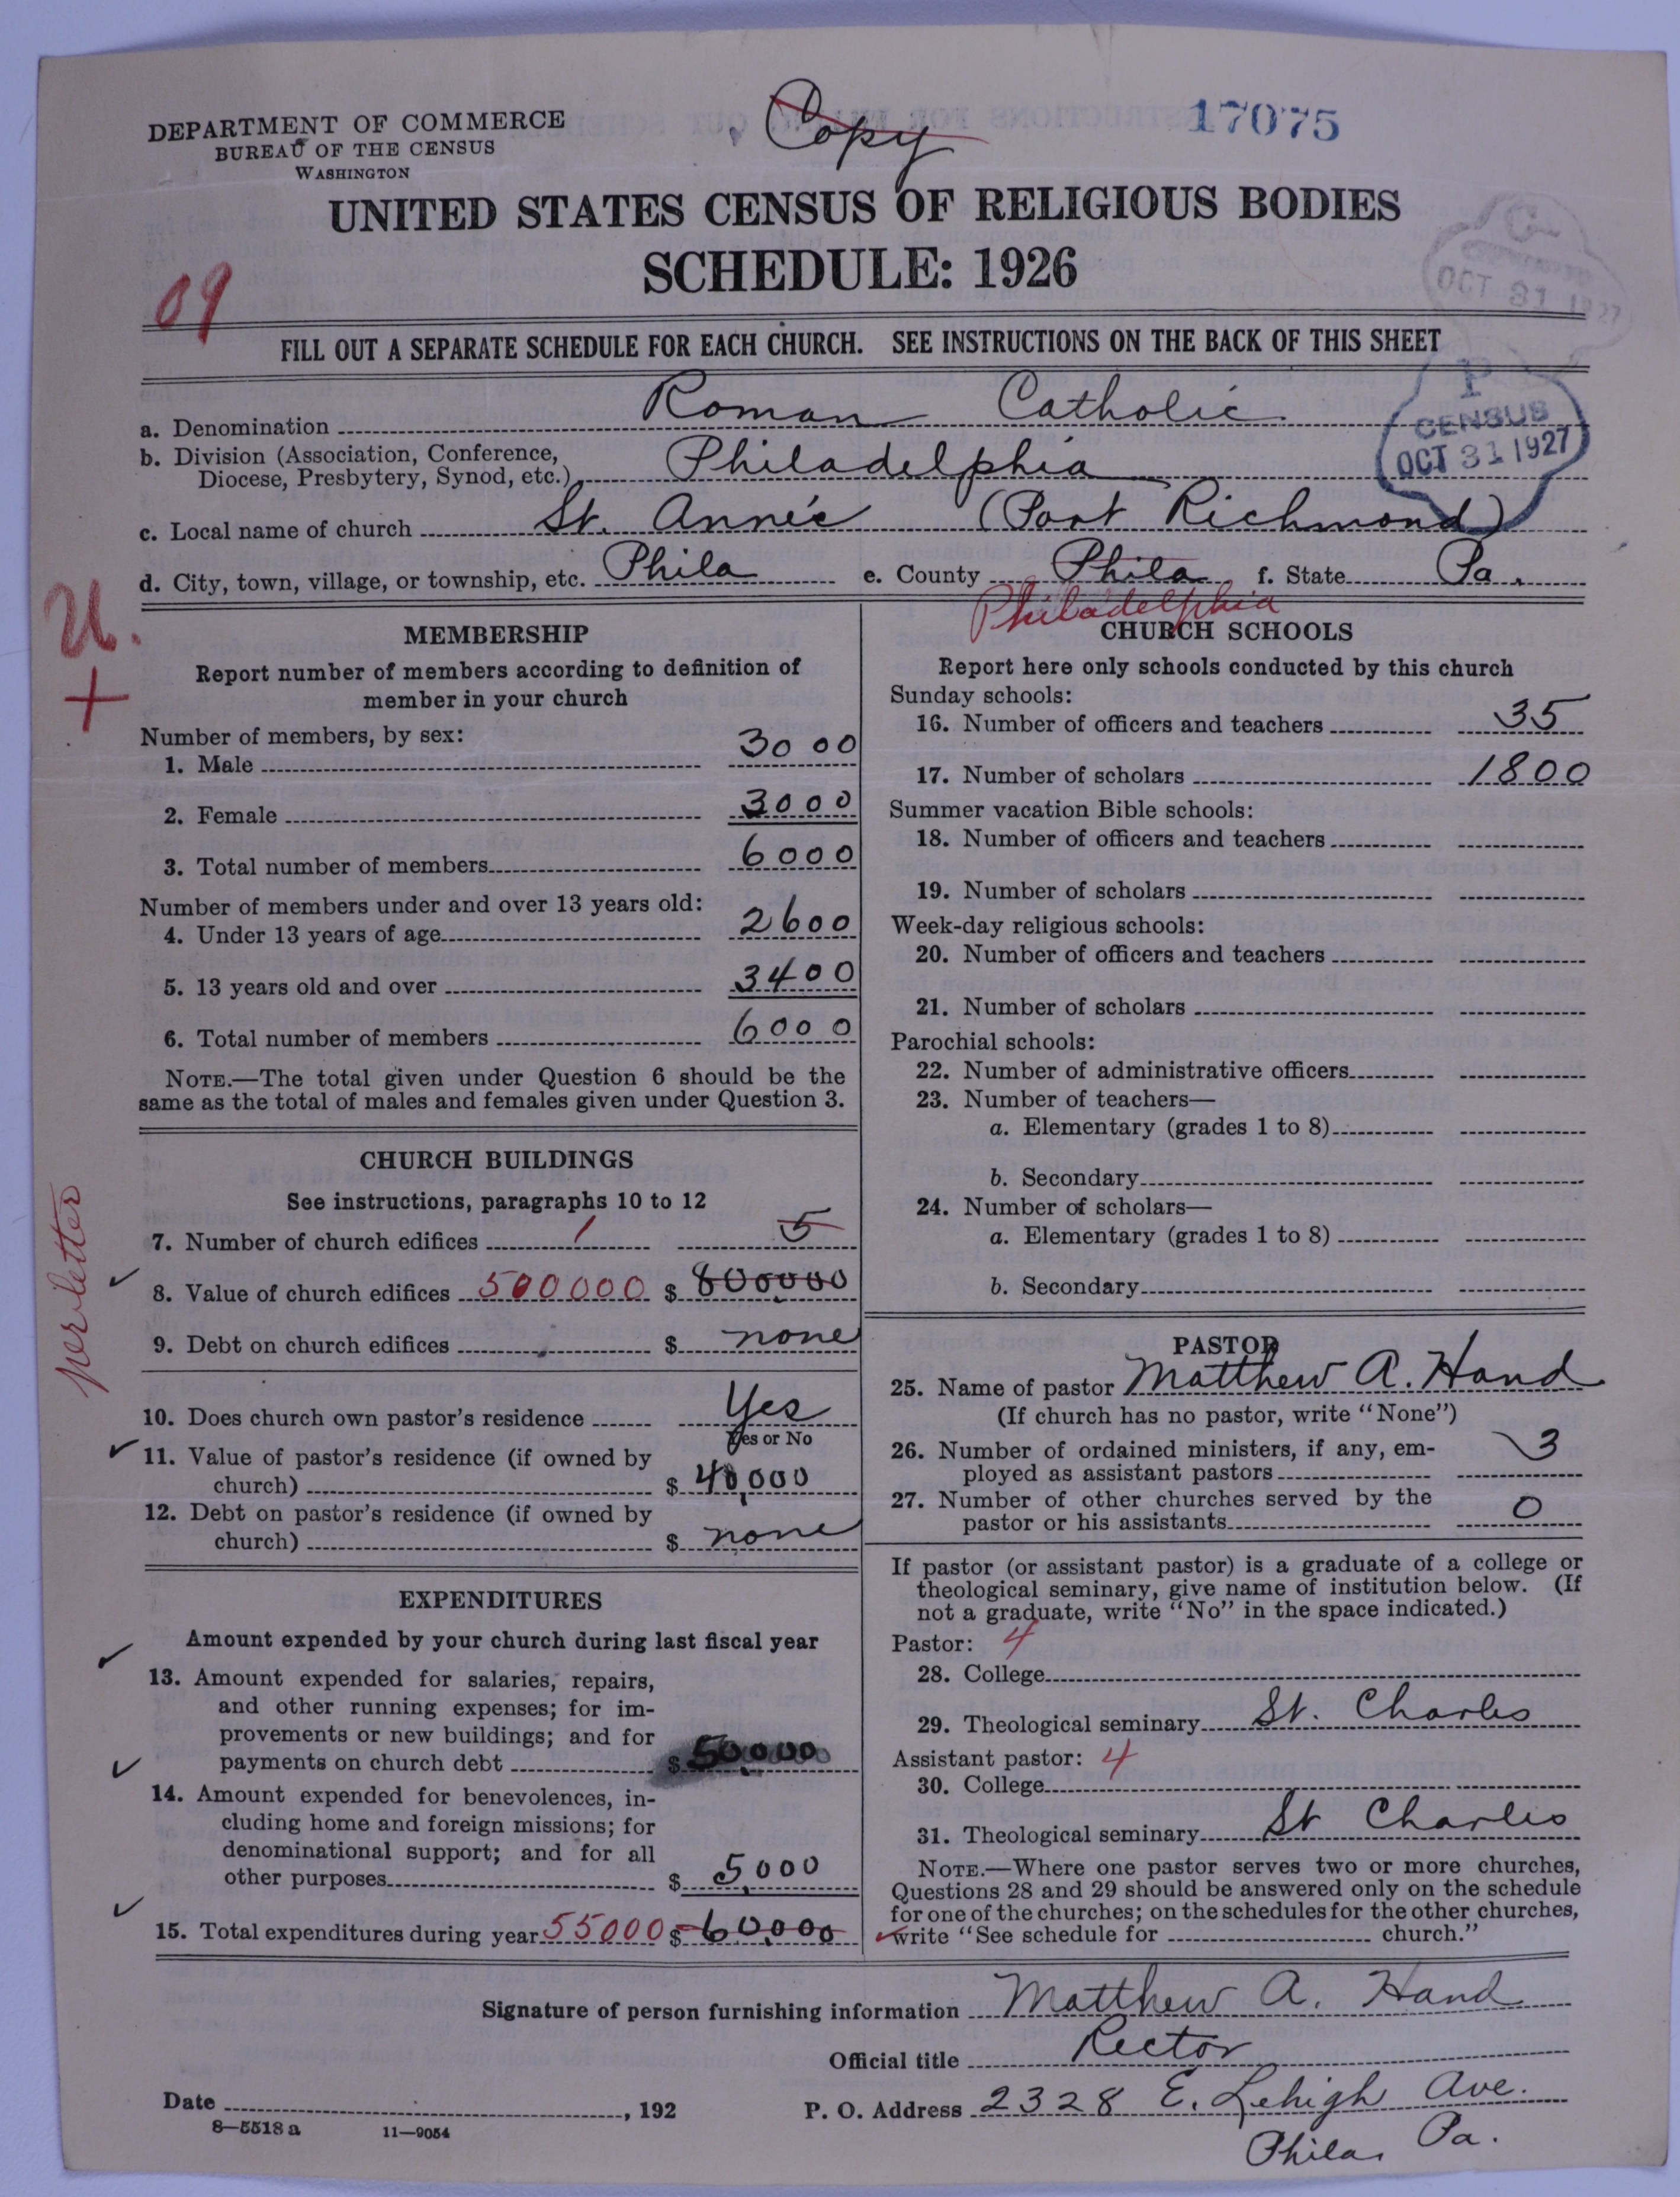 DEPARTMENT OF COMMERCE
BUREAU OF THE CENSUS
WASHINGTON
Copy
17075
UNITED STATES CENSUS OF RELIGIOUS BODIES
SCHEDULE: 1926
09
OCT 31 1927
FILL OUT A SEPARATE SCHEDULE FOR EACH CHURCH. SEE INSTRUCTIONS ON THE BACK OF THIS SHEET
P
CENSUS
OCT 31 1927
a. Denomination Roman Catholic
b. Division (Association, Conference,
Diocese, Presbytery, Synod, etc.) Philadelphia
c. Local name of church St. Anne's (Port Richmond)
d. City, town, village, or township, etc. Phila e. County Phila f. State Pa.
Philadelphia
U.
+
MEMBERSHIP
Report number of members according to definition of
member in your church
Number of members, by sex:
1. Male 3000
2. Female 3000
3. Total number of members 6000
Number of members under and over 13 years old:
4. Under 13 years of age 2600
5. 13 years old and over 3400
6. Total number of members 6000
NOTE.—The total given under Question 6 should be the
same as the total of males and females given under Question 3.
CHURCH BUILDINGS
See instructions, paragraphs 10 to 12
7. Number of church edifices 1 5
8. Value of church edifices 500000 $ 800000
per letter
9. Debt on church edifices $ none
10. Does church own pastor's residence Yes
Yes or No
11. Value of pastor's residence (if owned by
church) $ 40,000
12. Debt on pastor's residence (if owned by
church) $ none
EXPENDITURES
Amount expended by your church during last fiscal year
13. Amount expended for salaries, repairs,
and other running expenses; for im-
provements or new buildings; and for
payments on church debt $ 50,000
14. Amount expended for benevolences, in-
cluding home and foreign missions; for
denominational support; and for all
other purposes $ 5,000
15. Total expenditures during year 55000 $ 60,000
CHURCH SCHOOLS
Report here only schools conducted by this church
Sunday schools:
16. Number of officers and teachers 35
17. Number of scholars 1800
Summer vacation Bible schools:
18. Number of officers and teachers
19. Number of scholars
Week-day religious schools:
20. Number of officers and teachers
21. Number of scholars
Parochial schools:
22. Number of administrative officers
23. Number of teachers—
a. Elementary (grades 1 to 8)
b. Secondary
24. Number of scholars—
a. Elementary (grades 1 to 8)
b. Secondary
PASTOR
25. Name of pastor Matthew A. Hand
(If church has no pastor, write "None")
26. Number of ordained ministers, if any, em-
ployed as assistant pastors 3
27. Number of other churches served by the
pastor or his assistants 0
If pastor (or assistant pastor) is a graduate of a college or
theological seminary, give name of institution below. (If
not a graduate, write "No" in the space indicated.)
Pastor: 4
28. College
29. Theological seminary St. Charles
Assistant pastor: 4
30. College
31. Theological seminary St Charles
NOTE.—Where one pastor serves two or more churches,
Questions 28 and 29 should be answered only on the schedule
for one of the churches; on the schedules for the other churches,
write "See schedule for church."
Signature of person furnishing information Matthew A. Hand
Official title Rector
Date , 192 P. O. Address 2328 E. Lehigh Ave.
Phila. Pa.
8—5518 a 11—9054